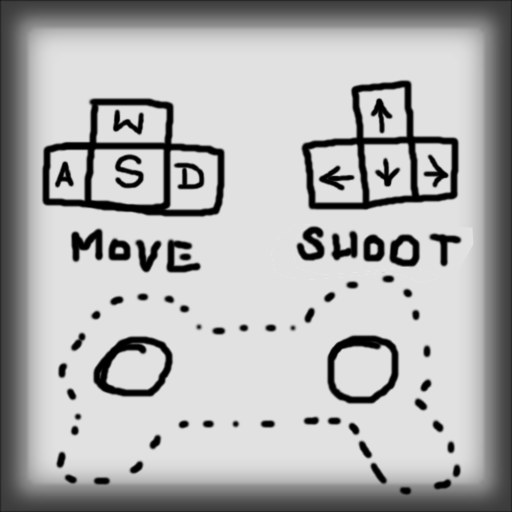 W
A S D
↑
← ↓ →
MOVE
SHOOT